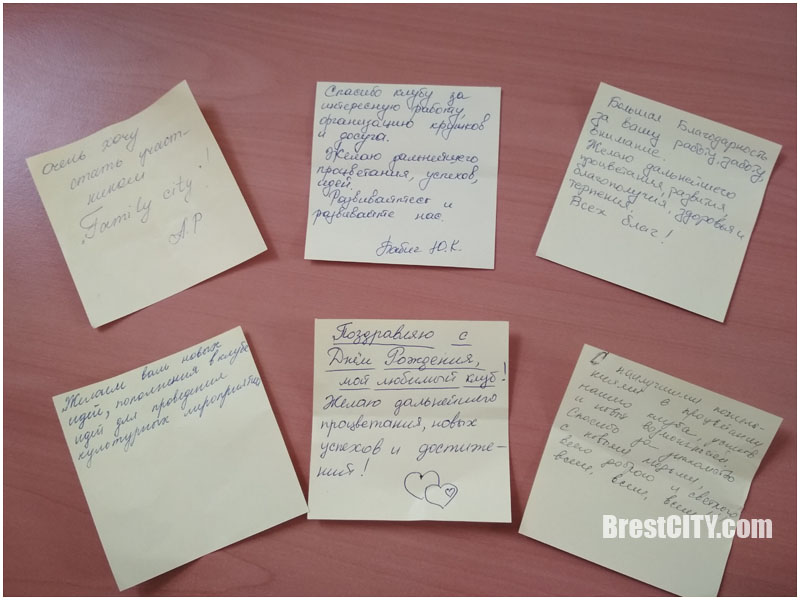 очень хочу
стать участ-
ником
"Family city"!
А.Р
Спасибо клубу за
интересную работу,
организацию кружков
и досуга.
Желаю дальнейшего
процветания, успехов,
идей.
Развивайтесь и
развивайте нас.
Бабич Ю.К.
Большая Благодарность
за вашу работу, заботу,
внимание.
Желаю дальнейшего
процветания, развития
благополучия, здоровья и
терпения.
Всех благ!
Желаем вам новых
идей, пополнения в клубе
идей для проведения
культурных мероприятий
Поздравляю с
Днём Рождения,
мой любимый клуб!
Желаю дальнейшего
процветания, новых
успехов и достиже-
ний!
С наилучшими пожела-
ниями в процветании
нашего клуба, успехов
и новых возможностей
Спасибо за знакомство
с новыми людьми,
всего доброго и светлого
всем, всем, всем
BrestCITY.com